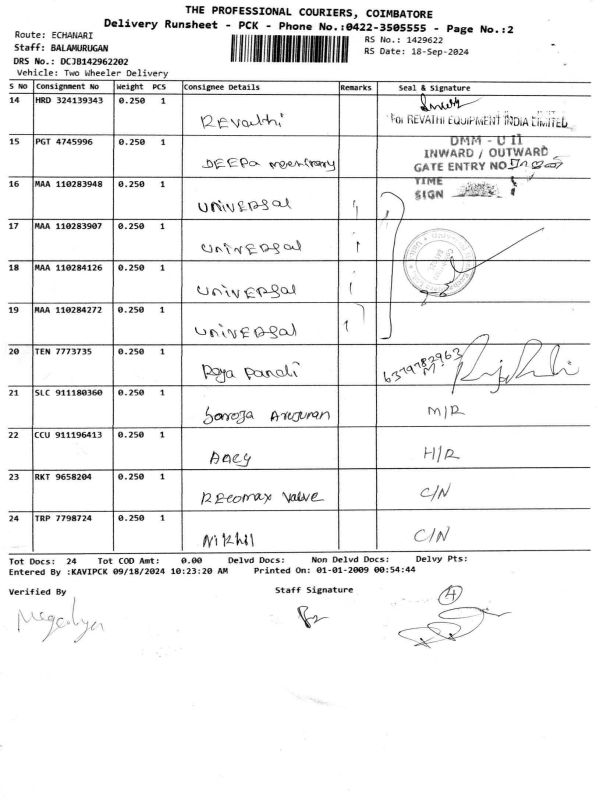 THE PROFESSIONAL COURIERS, COIMBATORE
Delivery Runsheet - PCK - Phone No.:0422-3505555 - Page No.:2
Route: ECHANARI
RS No.: 1429622
Staff: BALAMURUGAN
RS Date: 18-Sep-2024
DRS No.: DCJB142962202
Vehicle: Two Wheeler Delivery
S No Consignment No Weight PCS Consignee Details Remarks Seal & Signature
14 HRD 324139343 0.250 1 REvathi
For REVATHI EQUIPMENT INDIA LIMITED
15 PGT 4745996 0.250 1 DEEPA
DMM - U II
INWARD / OUTWARD
GATE ENTRY NO
TIME
SIGN
16 MAA 110283948 0.250 1 UNIVERSal
17 MAA 110283907 0.250 1 UNIVERSal
18 MAA 110284126 0.250 1 UNIVERSal
19 MAA 110284272 0.250 1 UNIVERSal
20 TEN 7773735 0.250 1 6379782963
21 SLC 911180360 0.250 1 Saroja M/R
22 CCU 911196413 0.250 1 H/R
23 RKT 9658204 0.250 1 Valve C/N
24 TRP 7798724 0.250 1 Nikhil C/N
Tot Docs: 24 Tot COD Amt: 0.00 Delvd Docs: Non Delvd Docs: Delvy Pts:
Entered By :KAVIPCK 09/18/2024 10:23:20 AM Printed On: 01-01-2009 00:54:44
Verified By Staff Signature
4